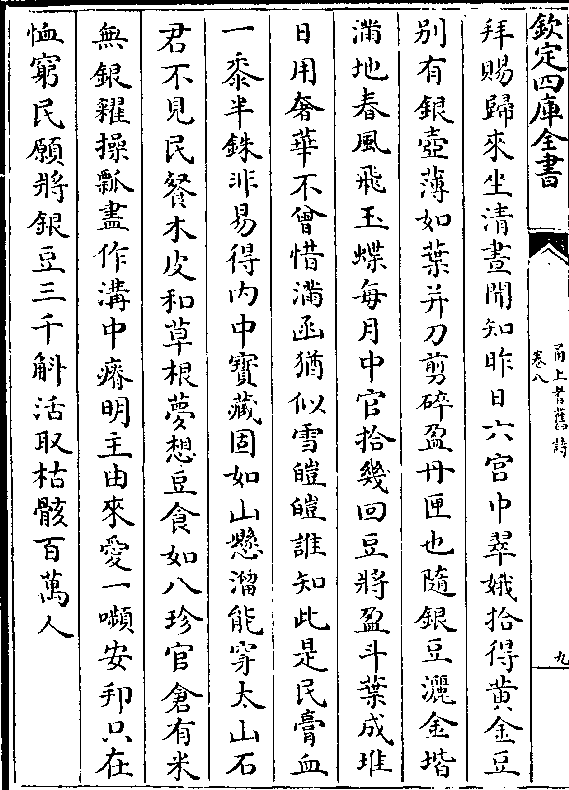 欽定四庫全書
甬上耆舊詩
卷八
九
拜賜歸來坐清晝聞知昨日六宮中翠娥拾得黄金豆
别有銀壺薄如葉并刀剪碎盈丹匣也隨銀豆灑金堦
滿地春風飛玉蝶每月中官拾幾回豆將盈斗葉成堆
日用奢華不曾惜滿函猶似雪皚皚誰知此是民膏血
一黍半銖非易得内中寶藏固如山懸溜能穿太山石
君不見民餐木皮和草根夢想豆食如八珍官倉有米
無銀糴操瓢盡作溝中瘠明主由來愛一嚬安邦只在
恤窮民願將銀豆三千斛活取枯骸百萬人